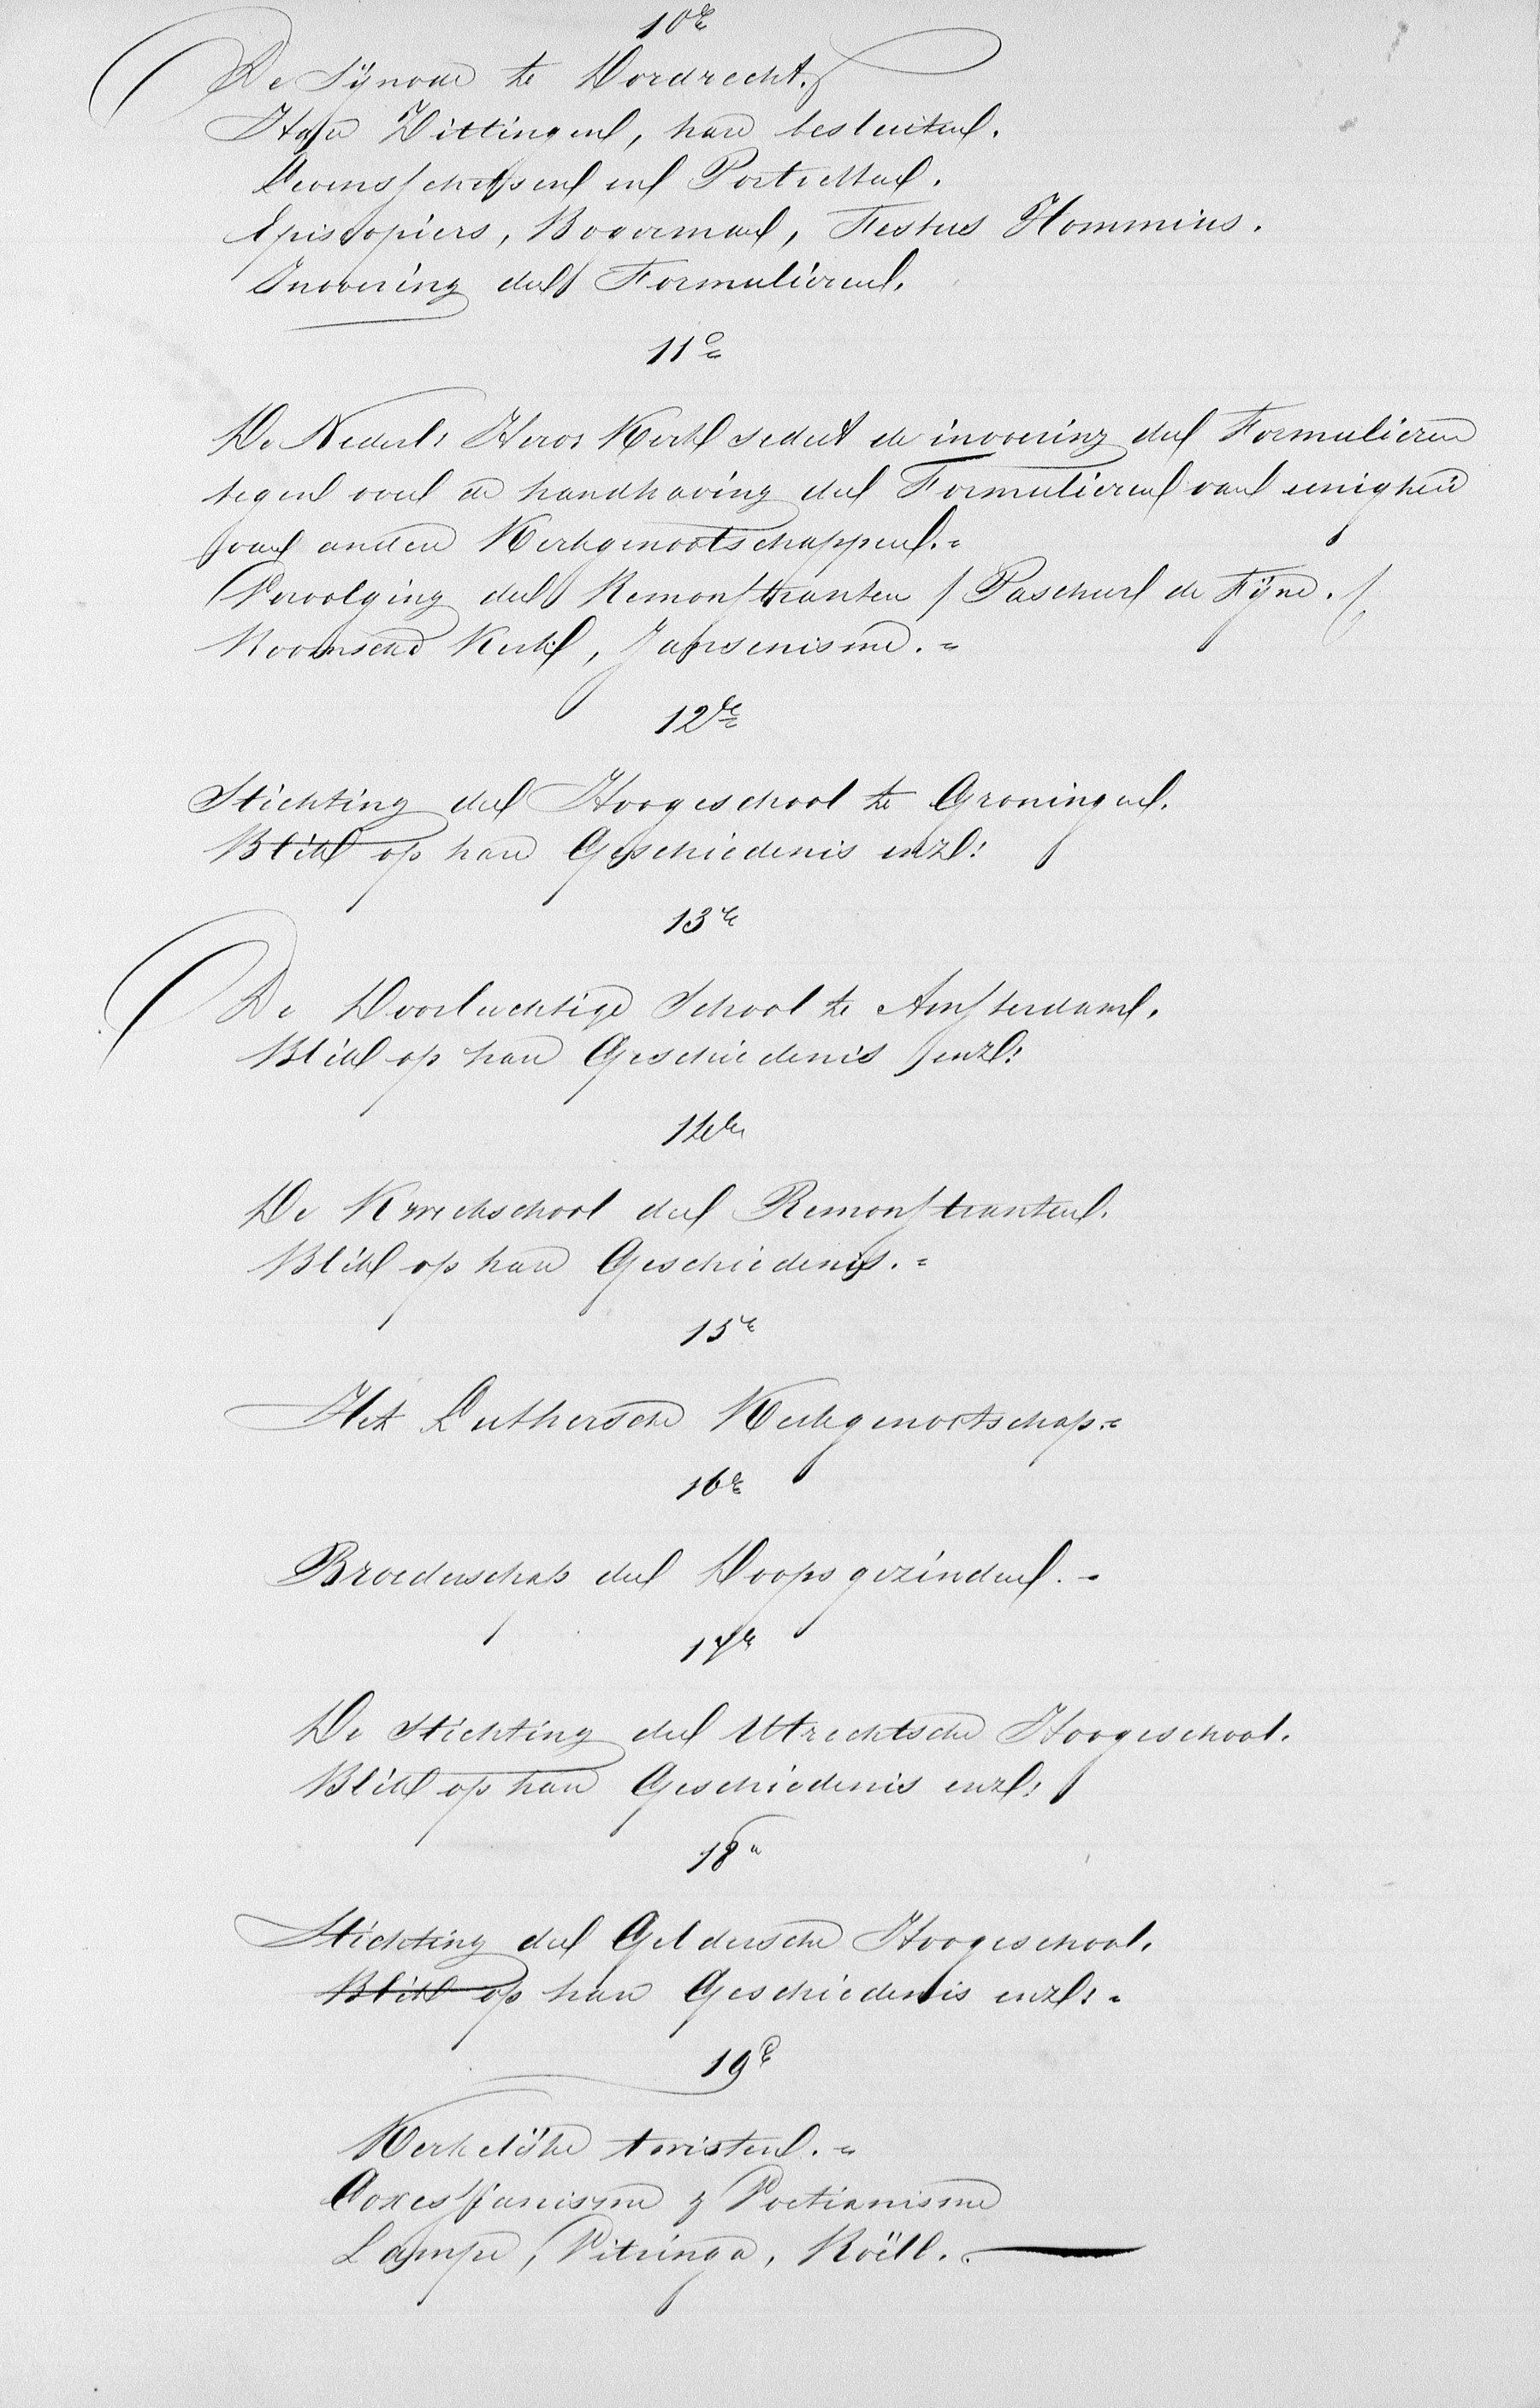 10e
De Synode te Dordrecht.
Hare Zittingen, hare besluiten.
Levensschetsen en Portretten.
Episcopius, Bogerman, Festus Hommius.
Invoering der Formulieren.
11e
De Nederl: Herv: Kerk sedert de invoering der Formulieren
tegen over de handhaving der Formulieren van eenigheid
van andere Kerkgenootschappen. =
Vervolging der Remonstranten / Paschier de Fijne. /
Roomsche Kerk, Jansenisme. =
12de
Stichting der Hoogeschool te Groningen.
Blik op hare Geschiedenis enz:
13de
De Doorluchtige School te Amsterdam.
Blik op hare Geschiedenis enz:
14de
De Kweekschool der Remonstranten.
Blik op hare Geschiedenis. =
15de
Het Luthersche Kerkgenootschap. =
16de
Broederschap der Doopsgezinden. =
17de
De Stichting der Utrechtsche Hoogeschool.
Blik op hare Geschiedenis enz:
18e
Stichting der Geldersche Hoogeschool.
Blik op hare Geschiedenis enz: =
19e
Kerkelijke twisten. =
Coccejanisme & Voetianisme
Lampe, Vitringa, Roëll.